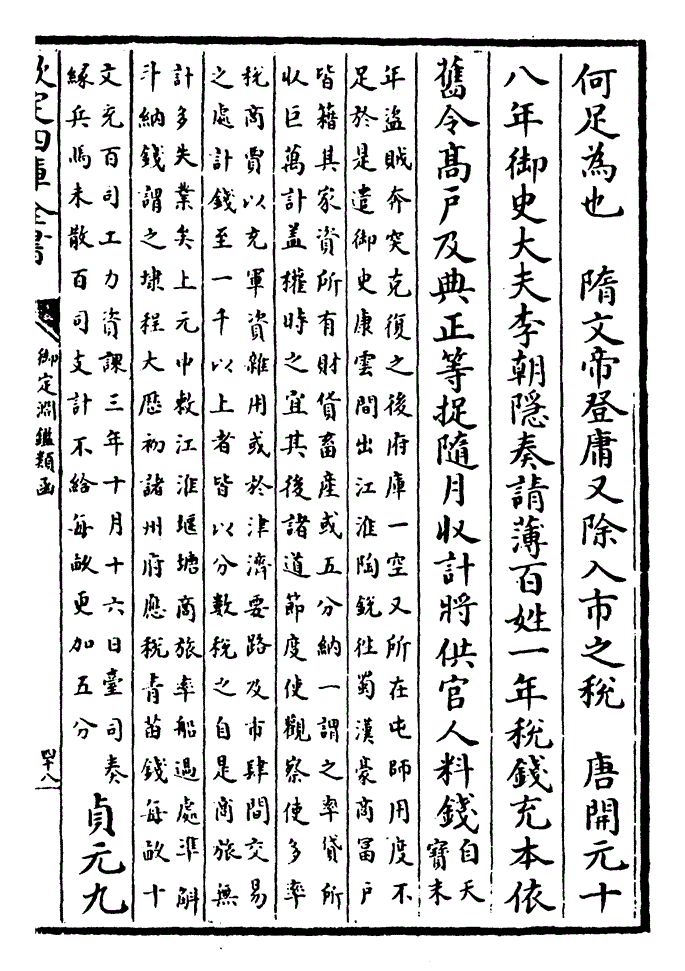 何足為也　隋文帝登庸又除入市之稅　唐開元十
八年御史大夫李朝隱奏請薄百姓一年稅錢充本依
舊令髙戶及典正等捉隨月收計將供官人料錢
自天
寳末
年盜賊奔突克復之後府庫一空又所在屯師用度不
足於是遣御史康雲間出江淮陶銳徃蜀漢豪商冨戶
皆籍其家資所有財貨畜產或五分納一謂之率貸所
收巨萬計盖權時之宜其後諸道節度使觀察使多率
稅商賈以充軍資雜用或於津濟要路及市肆間交易
之處計錢至一千以上者皆以分數稅之自是商旅無
計多失業矣上元中敕江淮堰塘商旅率船過處準斛
斗納錢謂之埭程大厯初諸州府應稅青苗錢每畝十
文充百司工力資課三年十月十六日臺司奏
緣兵馬未散百司支計不給每畝更加五分
貞元九
欽定四庫全書
御定淵鑑類函
四十八